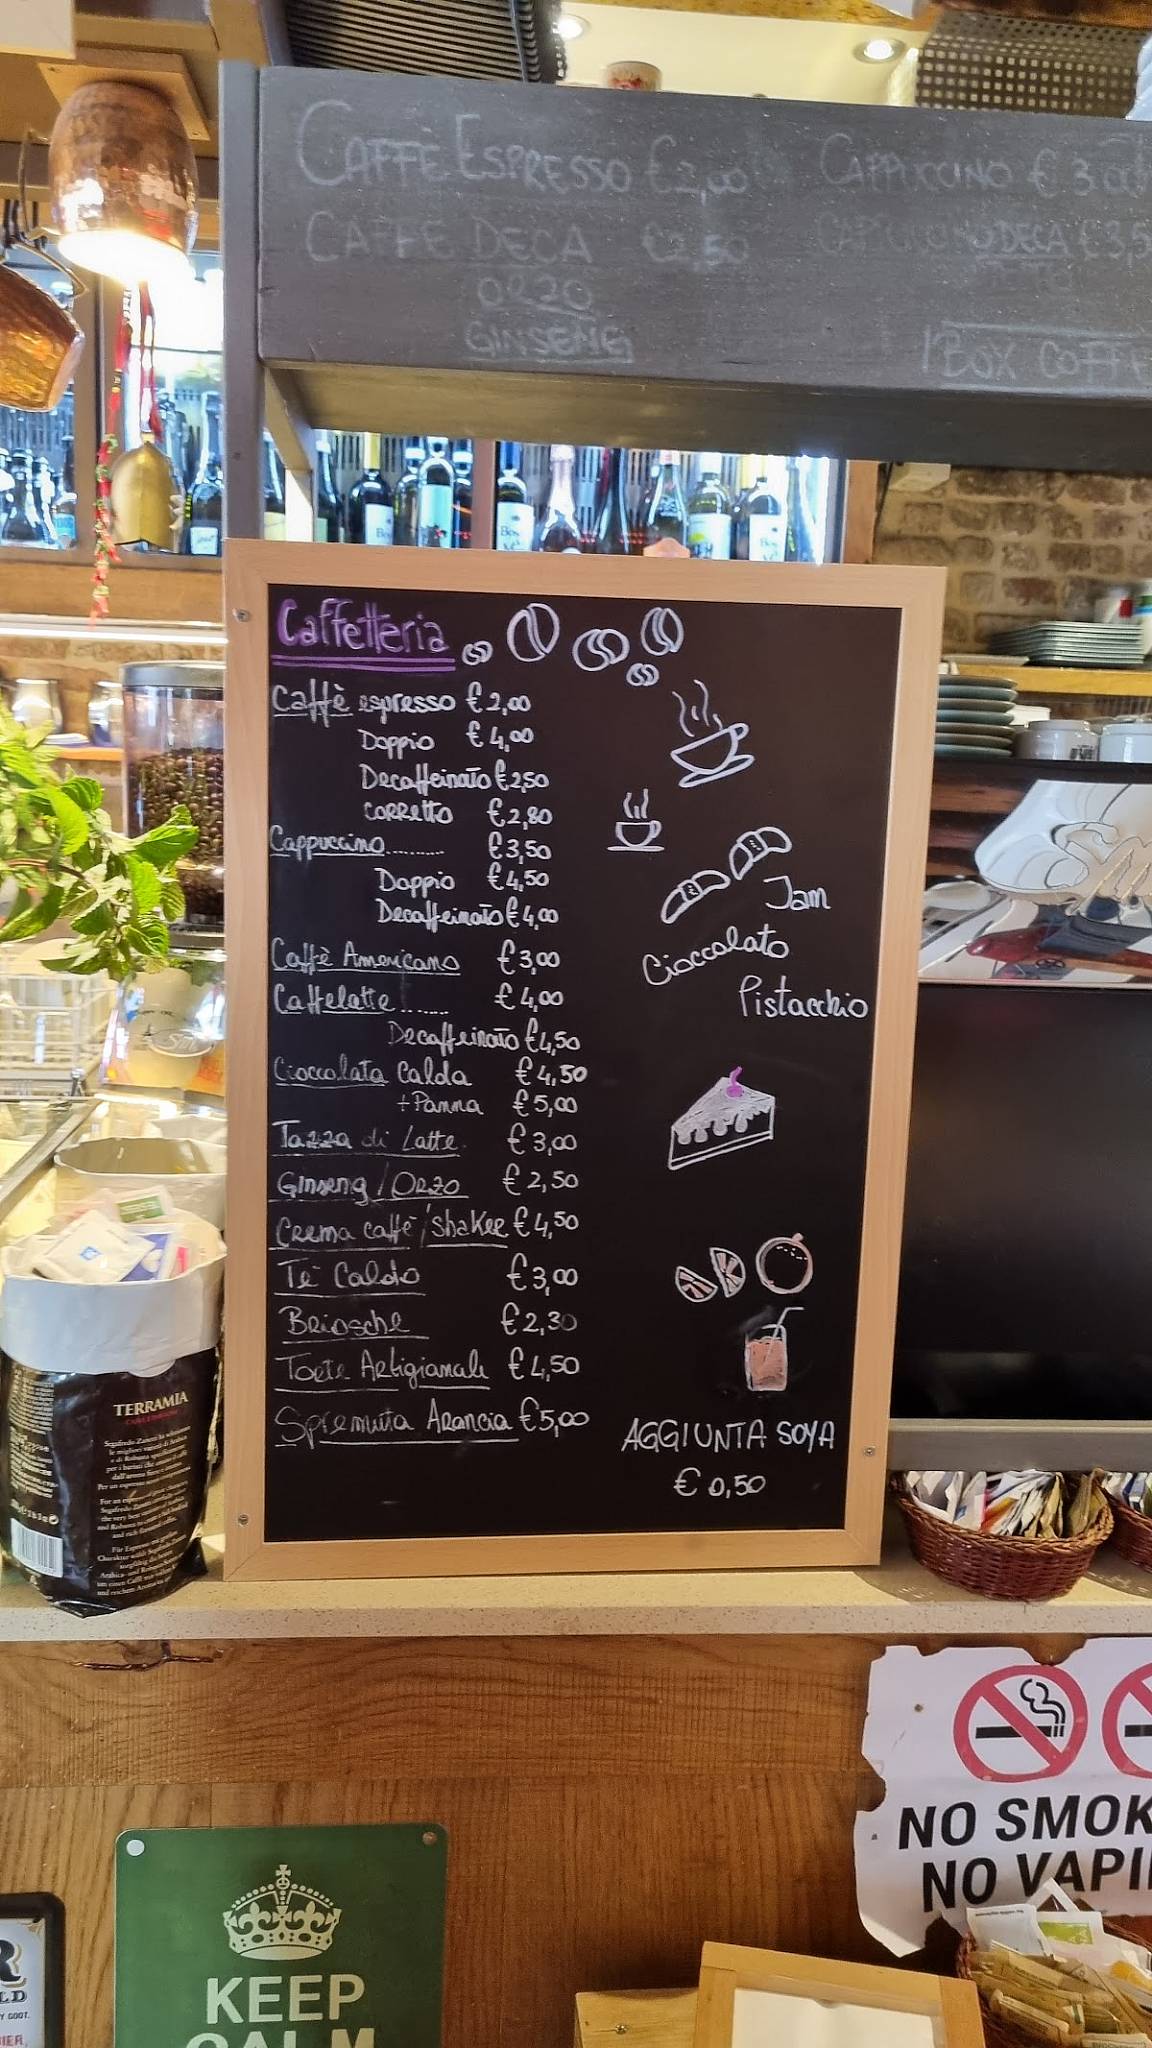 CAFFÈ ESPRESSO €2,00 CAPPUCCINO € 3.00
CAFFÈ DECA €2,50 CAPPUCCINO DECA €3,5
ORZO
GINSENG
1 BOX COFF
Caffetteria
Caffè espresso € 2,00
Doppio € 4,00
Decaffeinato € 2,50
corretto € 2,80
Cappuccino.......... € 3,50
Doppio € 4,50
Decaffeinato € 4,00
Caffè Americano € 3,00
Caffelatte....... € 4,00
Decaffeinato €4,50
Cioccolata Calda € 4,50
+ Panna € 5,00
Tazza di Latte € 3,00
Ginseng / Orzo € 2,50
Crema caffè / Shaker € 4,50
Tè Caldo € 3,00
Briosche € 2,30
Torte Artigianali € 4,50
Spremuta Arancia € 5,00
Jam
Cioccolato
Pistacchio
AGGIUNTA SOYA
€ 0,50
TERRAMIA
NO SMOK
NO VAPI
KEEP
CALM